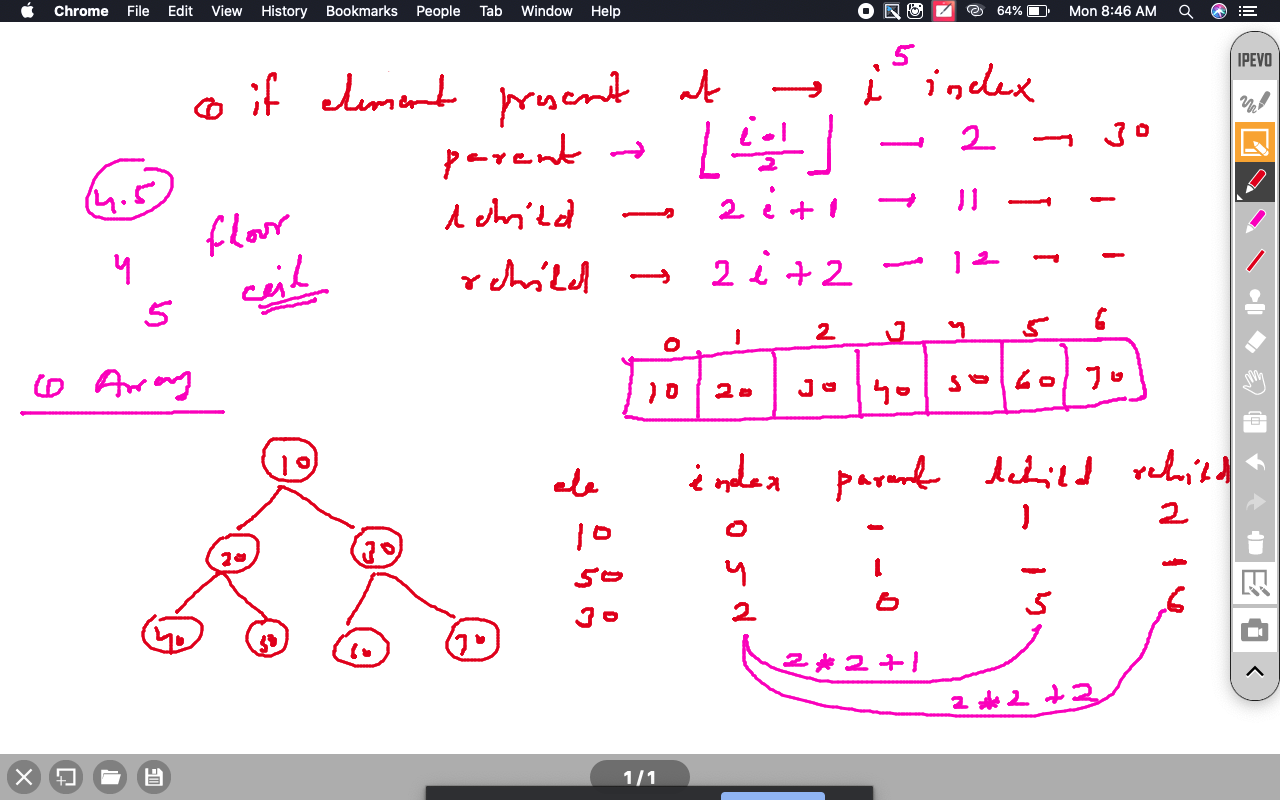 Chrome File Edit View History Bookmarks People Tab Window Help 64% Mon 8:46 AM
IPEVO
5
① if element present at → i index
parent → ⌊(i-1)/2⌋ → 2 → 30
lchild → 2i+1 → 11 → -
rchild → 2i+2 → 12 → -
4.5
floor
4
ceil
5
① Array
0 1 2 3 4 5 6
10 20 30 40 50 60 70
10
20 30
40 50 60 70
ele index parent lchild rchild
10 0 - 1 2
50 4 1 - -
30 2 0 5 6
2*2+1
2*2+2
1/1